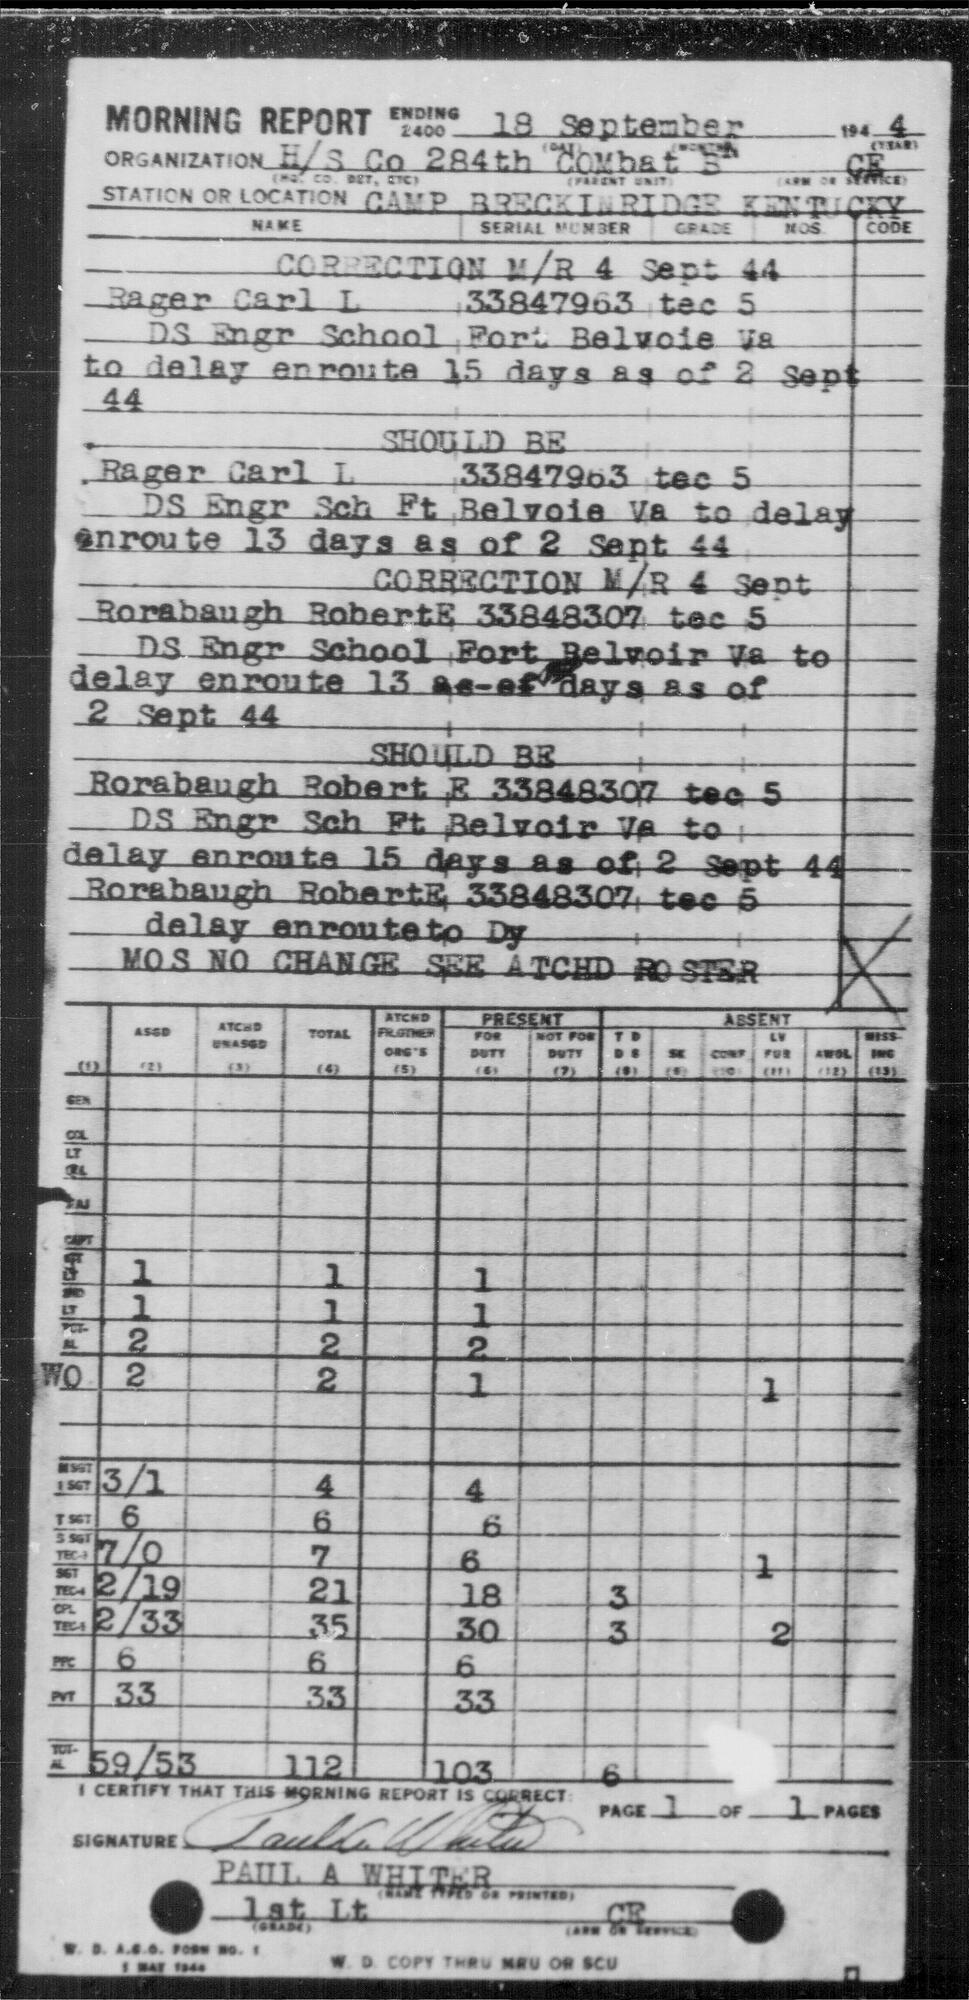 MORNING REPORT ENDING 2400 18 September 194 4
(DAY) (MONTH) (YEAR)
ORGANIZATION H/S Co 284th COMbat Bn CE
(HQ. CO. DET, ETC) (PARENT UNIT) (ARM OR SERVICE)
STATION OR LOCATION CAMP BRECKINRIDGE KENTUCKY
NAME SERIAL NUMBER GRADE MOS. CODE
CORRECTION M/R 4 Sept 44
Rager Carl L 33847963 tec 5
DS Engr School Fort Belvoie Va
to delay enroute 15 days as of 2 Sept
44
SHOULD BE
Rager Carl L 33847963 tec 5
DS Engr Sch Ft Belvoie Va to delay
enroute 13 days as of 2 Sept 44
CORRECTION M/R 4 Sept
Rorabaugh RobertE 33848307 tec 5
DS Engr School Fort Belvoir Va to
delay enroute 13 as-of days as of
2 Sept 44
SHOULD BE
Rorabaugh Robert E 33848307 tec 5
DS Engr Sch Ft Belvoir Va to
delay enroute 15 days as of 2 Sept 44
Rorabaugh RobertE 33848307 tec 5
delay enrouteto Dy
MOS NO CHANGE SEE ATCHD ROSTER
ASGD ATCHD UNASGD TOTAL ATCHD FR.OTHER ORG'S PRESENT ABSENT
FOR DUTY NOT FOR DUTY T D D S SK CONF LV FUR AWOL MISS-ING
(1) (2) (3) (4) (5) (6) (7) (8) (9) (10) (11) (12) (13)
GEN
COL
LT COL
MAJ
CAPT
1ST LT 1 1 1
2ND LT 1 1 1
TOT-AL 2 2 2
WO 2 2 1 1
M SGT 1 SGT 3/1 4 4
T SGT 6 6 6
S SGT TEC-3 7/0 7 6 1
SGT TEC-4 2/19 21 18 3
CPL TEC-5 2/33 35 30 3 2
PFC 6 6 6
PVT 33 33 33
TOT-AL 59/53 112 103 6
I CERTIFY THAT THIS MORNING REPORT IS CORRECT:
PAGE 1 OF 1 PAGES
SIGNATURE Paul A. Whiter
PAUL A WHITER
(NAME TYPED OR PRINTED)
1st Lt CE
(GRADE) (ARM OR SERVICE)
W. D. A.G.O. FORM NO. 1
1 MAY 1944
W. D. COPY THRU MRU OR SCU